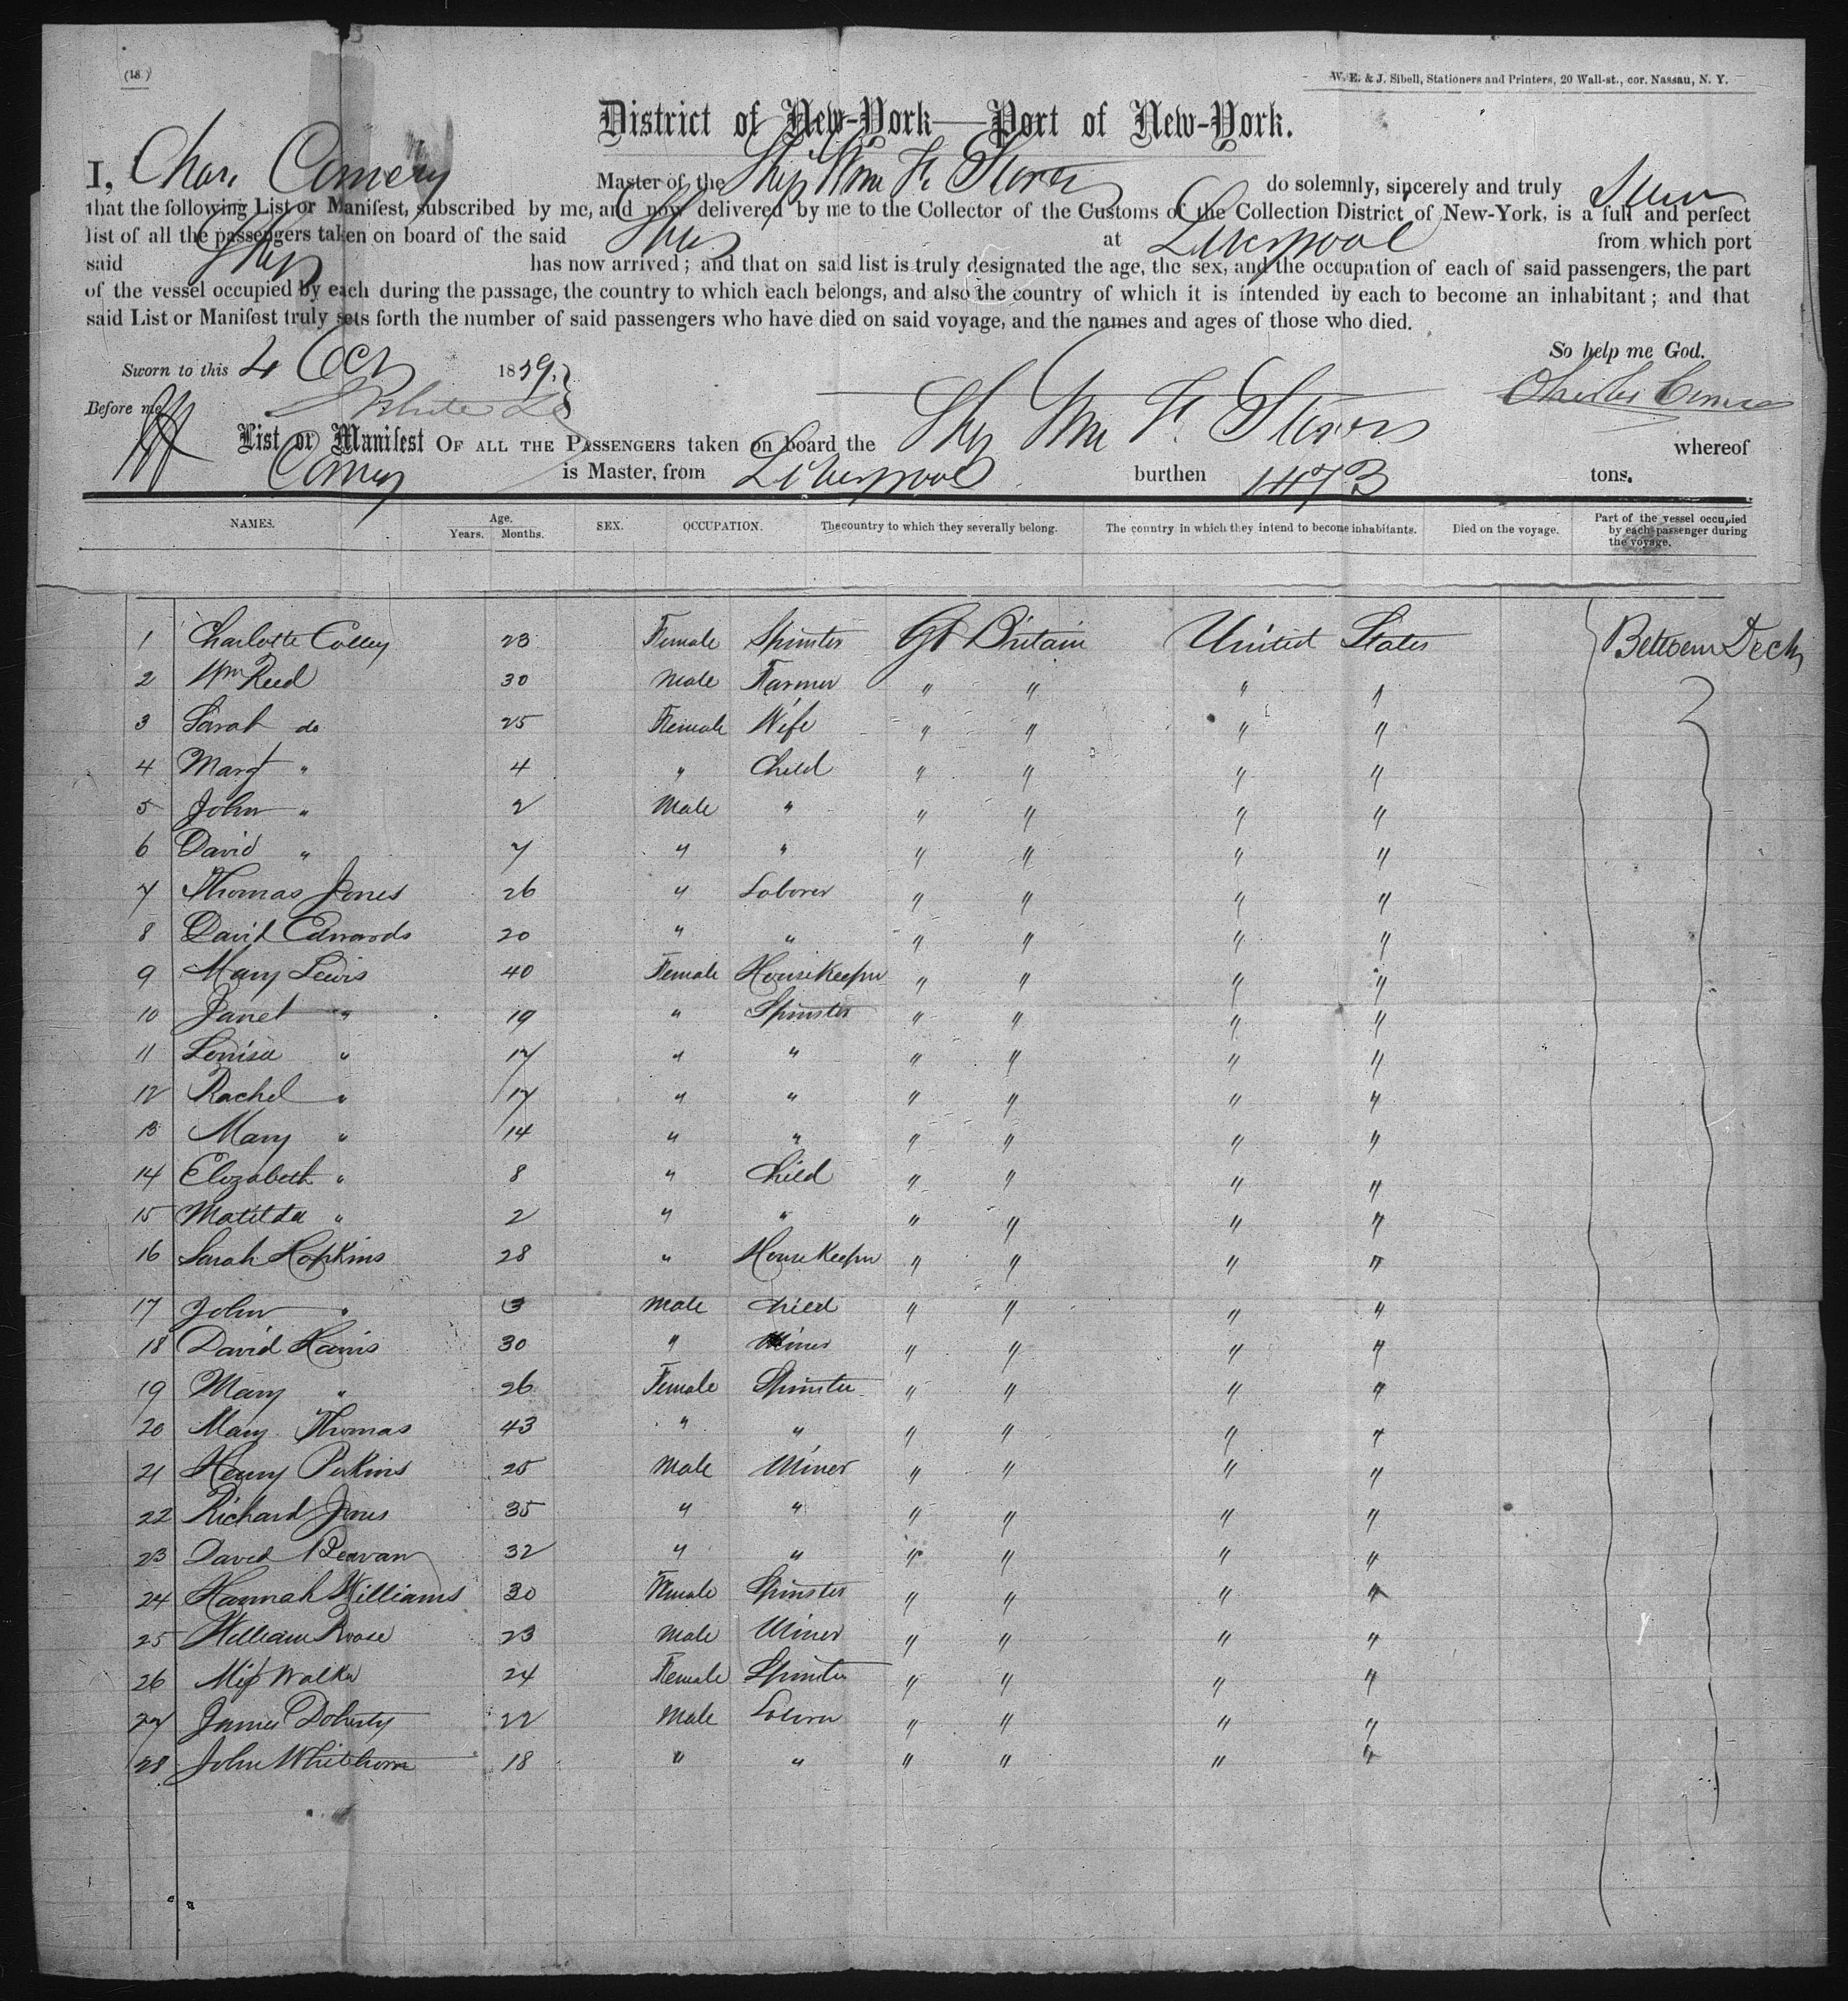 (18.)
W. E. & J. Sibell, Stationers and Printers, 20 Wall-st., cor. Nassau, N. Y.
District of New-York—Port of New-York.
I, Chas. Comery Master of the Ship Wm F. Storer do solemnly, sincerely and truly Swear
that the following List or Manifest, subscribed by me, and now delivered by me to the Collector of the Customs of the Collection District of New-York, is a full and perfect
list of all the passengers taken on board of the said Ship at Liverpool from which port
said Ship has now arrived; and that on said list is truly designated the age, the sex, and the occupation of each of said passengers, the part
of the vessel occupied by each during the passage, the country to which each belongs, and also the country of which it is intended by each to become an inhabitant; and that
said List or Manifest truly sets forth the number of said passengers who have died on said voyage, and the names and ages of those who died.
So help me God.
Sworn to this 4 Oct 1859.
Charles Comery
Before me
List or Manifest OF ALL THE PASSENGERS taken on board the Ship Wm F. Storer whereof
Comery is Master, from Liverpool burthen 1473 tons.
NAMES. Age. Years. Months. SEX. OCCUPATION. The country to which they severally belong. The country in which they intend to become inhabitants. Died on the voyage. Part of the vessel occupied by each passenger during the voyage.
1 Charlotte Colley 23 Female Spinster Gt Britain United States Between Deck
2 Wm Reed 30 Male Farmer " " " "
3 Sarah do 25 Female Wife " " " "
4 Margt " 4 " Child " " " "
5 John " 2 Male " " " " "
6 David " 7 " " " " " "
7 Thomas Jones 26 " Laborer " " " "
8 David Edwards 20 " " " " " "
9 Mary Lewis 40 Female HouseKeeper " " " "
10 Janet " 19 " Spinster " " " "
11 Louisa " 17 " " " " " "
12 Rachel " 17 " " " " " "
13 Mary " 14 " " " " " "
14 Elizabeth " 8 " Child " " " "
15 Matilda " 2 " " " " " "
16 Sarah Hopkins 28 " HouseKeeper " " " "
17 John " 3 Male Child " " " "
18 David Harris 30 " Miner " " " "
19 Mary " 26 Female Spinster " " " "
20 Mary Thomas 43 " " " " " "
21 Henry Perkins 25 Male Miner " " " "
22 Richard Jones 35 " " " " " "
23 David Beavan 32 " " " " " "
24 Hannah Williams 30 Female Spinster " " " "
25 William Roose 23 Male Miner " " " "
26 Miss Walker 24 Female Spinster " " " "
27 James Doherty 22 Male Laborer " " " "
28 John Whitehorn 18 " " " " " "